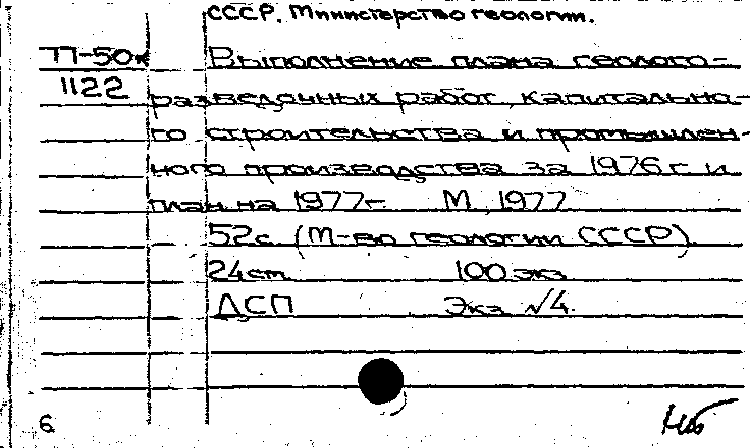 СССР. Министерство геологии.
77-50к Выполнение плана геолого-
1122 разведочных работ, капитально-
го строительства и промышлен-
ного производства за 1976 г. и
план на 1977 г. М., 1977
52 с. (М-во геологии СССР).
24 см. 100 экз.
ДСП Экз. √4.
6